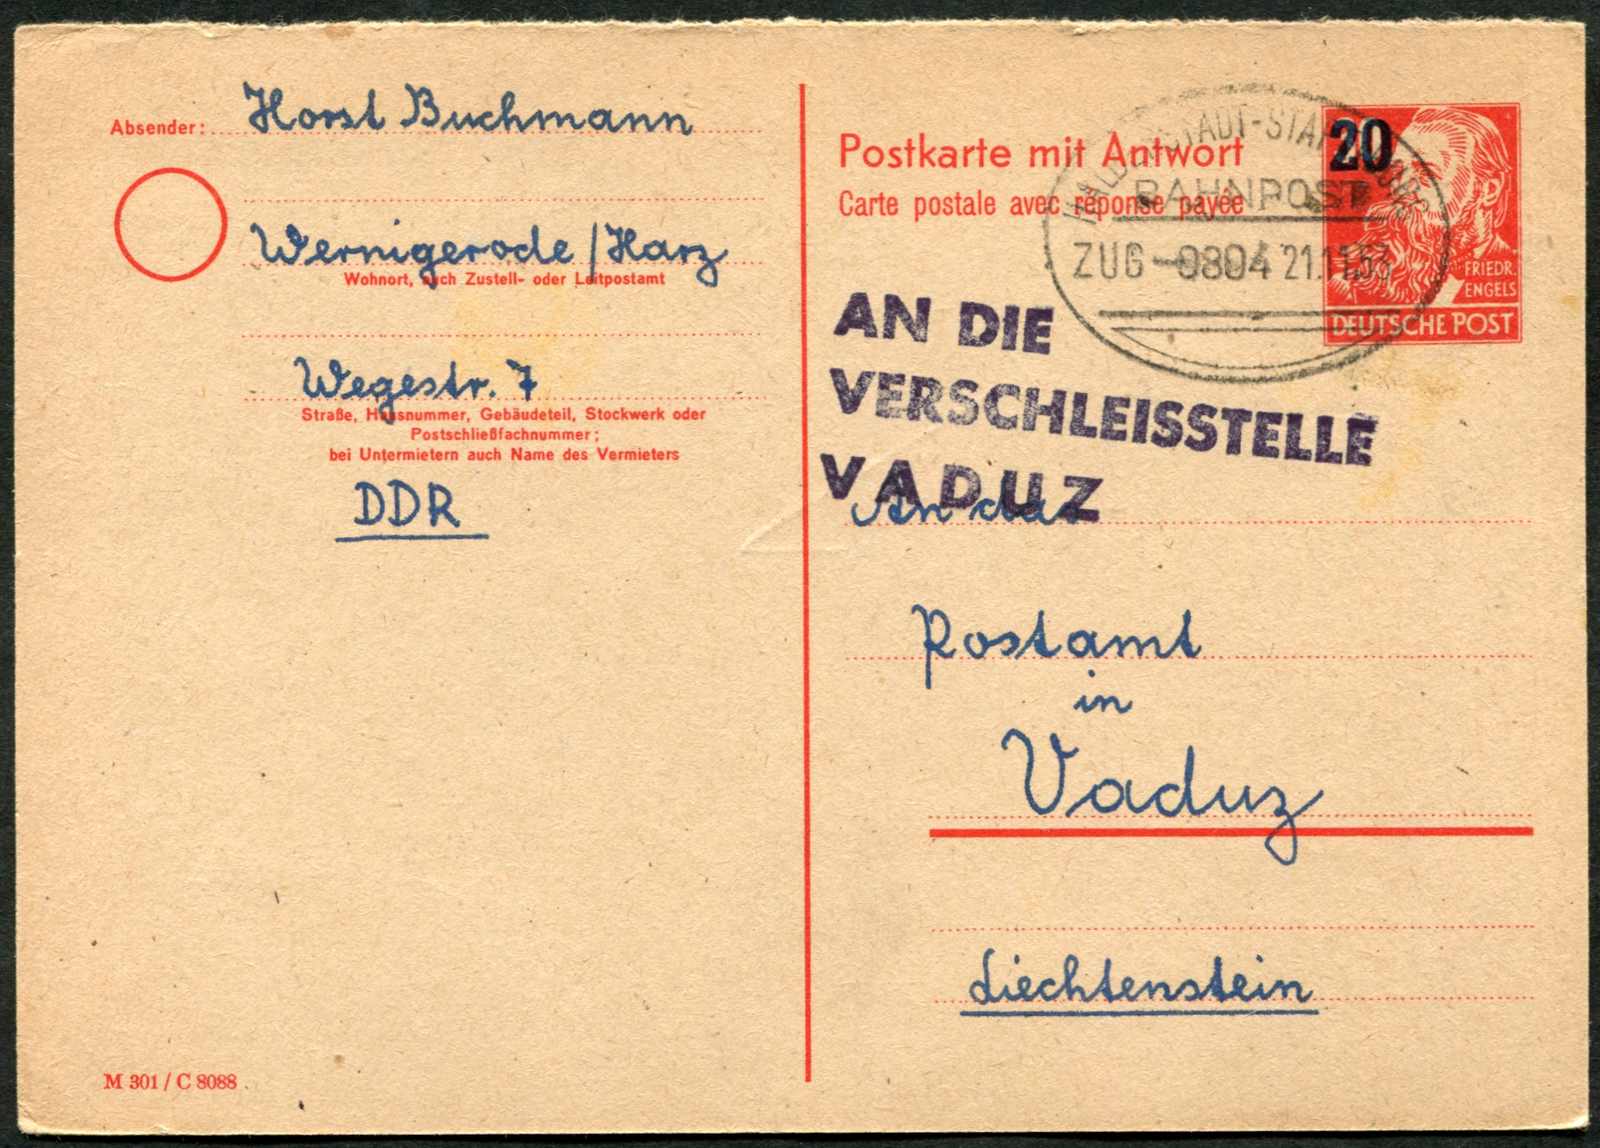 Absender: Horst Buchmann
Wernigerode / Harz
Wohnort, auch Zustell- oder Leitpostamt
Wegestr. 7
Straße, Hausnummer, Gebäudeteil, Stockwerk oder
Postschließfachnummer;
bei Untermietern auch Name des Vermieters
DDR
M 301 / C 8088
Postkarte mit Antwort
Carte postale avec réponse payée
BAHNPOST
ZUG 0804 21.11.53
20
FRIEDR.
ENGELS
DEUTSCHE POST
AN DIE
VERSCHLEISSTELLE
VADUZ
An das
Postamt
in
Vaduz
Liechtenstein